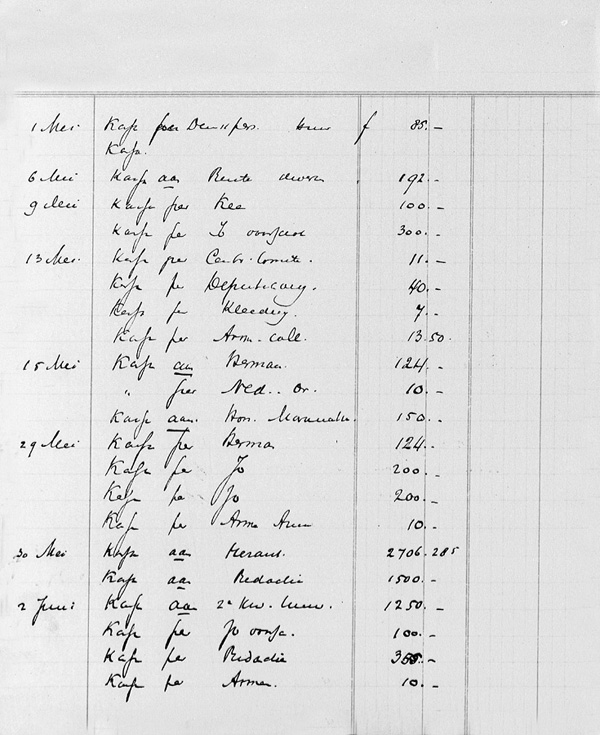 1 Mei Kasp per pers. Huur f 85.-
Kasp.
6 Mei Kasp aan Rente diverse 192.-
9 Mei Kasp per Kee 100.-
Kasp per Jo voorschot 300.-
13 Mei. Kasp per Contr. Comité. 11.-
Kasp per 40.-
Kasp per Kleeding. 7.-
Kasp per Arm. coll. 13.50.
15 Mei Kasp aan Herman 124.-
" per Ned.. Or. 10.-
Kasp aan. Hon. Maranatha. 150.-
29 Mei Kasp per Herman 124.-
Kasp per Jo 200.-
Kasp per Jo 200.-
Kasp per Arme 10.-
30 Mei Kasp aan Heraut. 2706.285
Kasp aan Redactie 1500.-
2 Juni Kasp aan 2e Kw. 1250.-
Kasp per Jo voorsch. 100.-
Kasp per Redactie 355.-
Kasp per Armen. 10.-